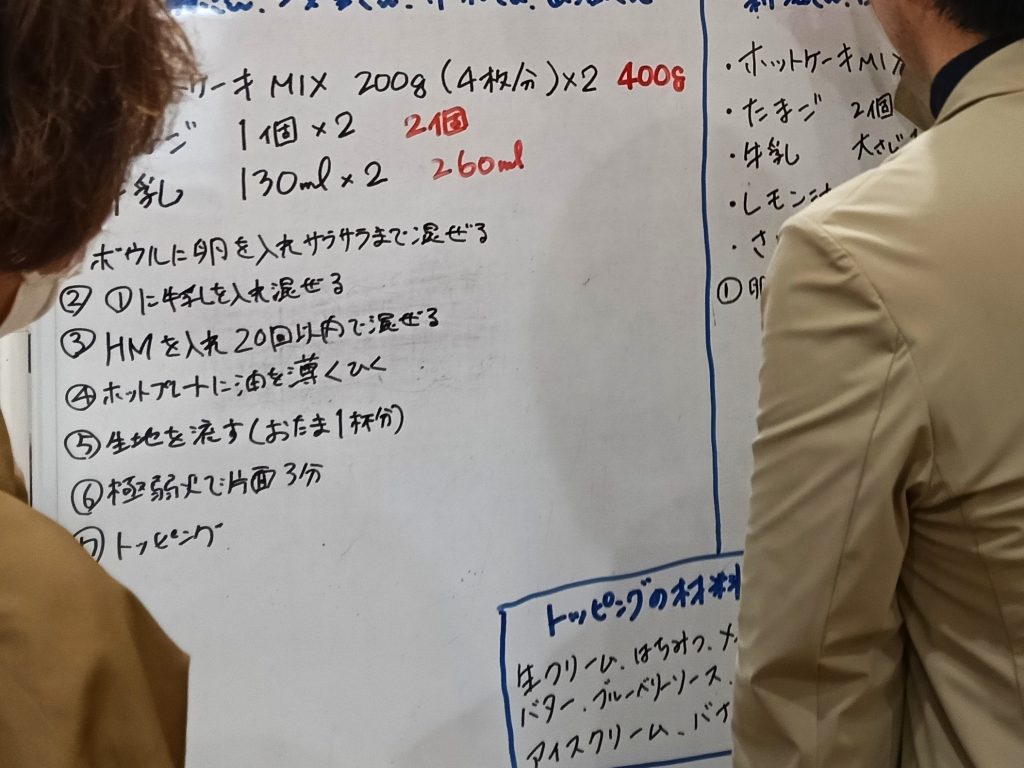 ケーキMIX 200g(4枚/分)×2 400g
ご 1個×2 2個
牛乳 130ml×2 260ml
ボウルに卵を入れサラサラまで混ぜる
② ①に牛乳を入れ混ぜる
③ HMを入れ20回以内で混ぜる
④ ホットプレートに油を薄くひく
⑤ 生地を流す(おたま1杯分)
⑥ 極弱火で片面3分
⑦ トッピング
・ホットケーキMIX
・たまご 2個
・牛乳 大さじ
・レモン汁
・さ
① 卵
トッピングの材料
生クリーム、はちみつ、
バター、ブルーベリーソース、
アイスクリーム、バナ